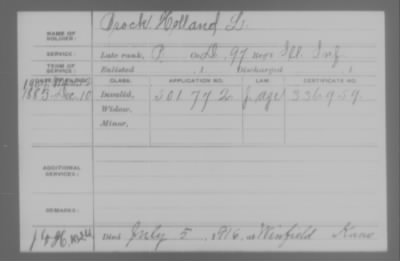 NAME OF SOLDIER: Brock, Holland L.
SERVICE: Late rank, P. Co. D, 97 Reg't Ill. Inf.
TERM OF SERVICE: Enlisted , 1 Discharged , 1
DATE OF FILING. CLASS. APPLICATION NO. LAW. CERTIFICATE NO.
1885. Dec. 10 Invalid, 501 772 336959.
Widow,
Minor,
ADDITIONAL SERVICES:
REMARKS:
Died July 5, 1916, at Winfield Kans